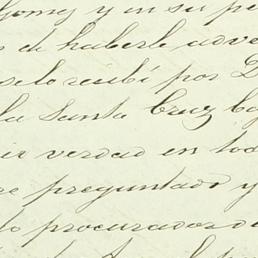 y en su pe
de haberle adve
selo recibí por D
la Santa Cruz ba
ir verdad en tod
re preguntado y
lo procurador d